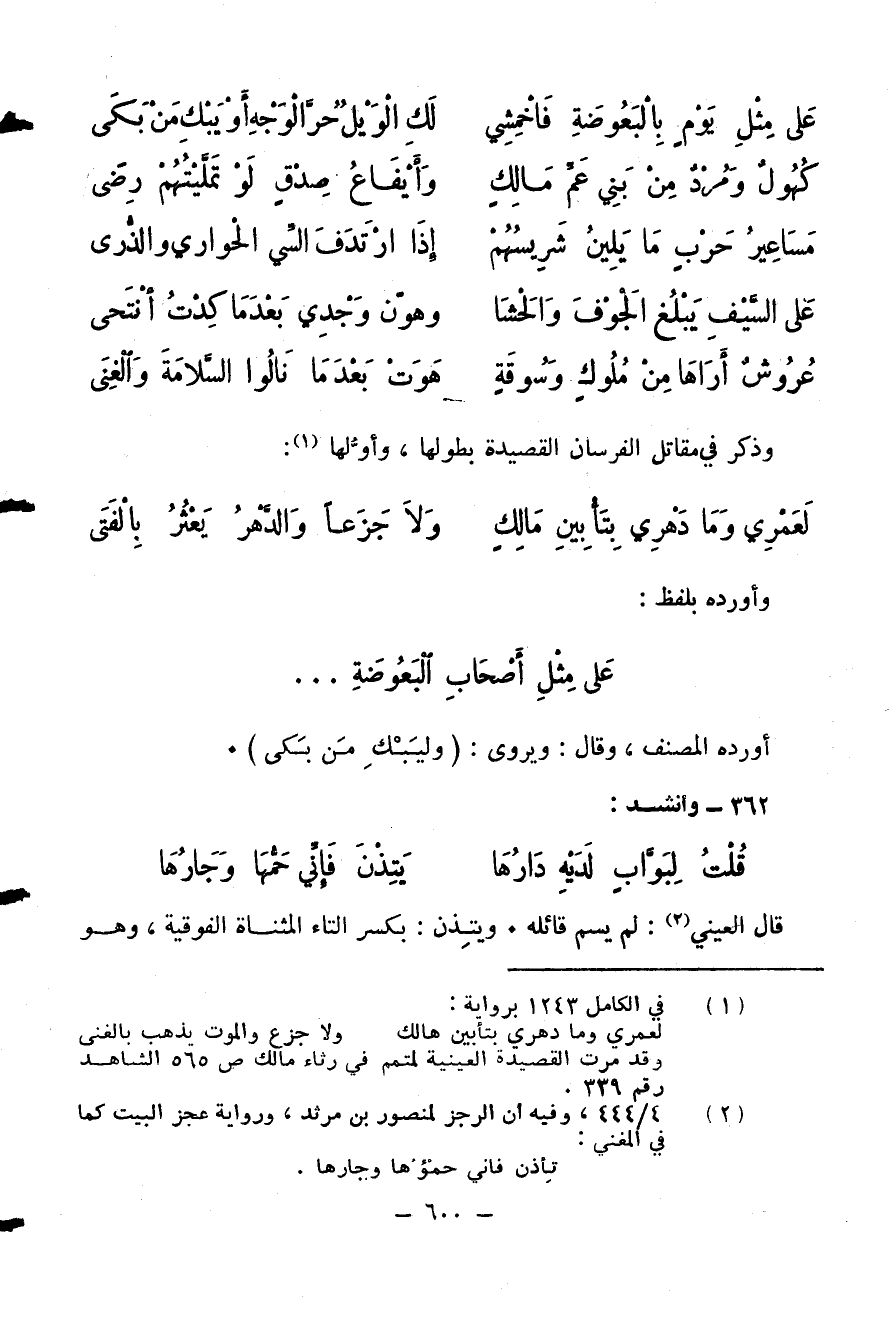 عَلى مِثْلِ يَوْمٍ بِالْبَعُوضَةِ فَاخْمِشِي لَكِ الْوَيْل حرَّ الْوَجْهِ أَوْ يَبْكِ مَنْ بَكَى
كُهُولٌ وَمُرْدٌ مِنْ بَنِي عَمِّ مَالِكٍ وَأَيْفَاعُ صِدْقٍ لَوْ تَمَلَّيْتُهُمْ رِضَى
مَسَاعِيرُ حَرْبٍ مَا يَلِينُ شَرِيسُهُمْ إِذَا ارْتَدَفَ السِّي الحواري والذُّرى
عَلى السَّيْفِ يَبْلُغ الجَوْفَ وَالحَشَا وهوّن وَجْدِي بَعْدَمَا كِدْتُ أنْتَحى
عُرُوشٌ أَرَاهَا مِنْ مُلُوكٍ وَسُوقَةٍ هَوَتْ بَعْدَمَا نَالُوا السَّلامَةَ وَٱلْغِنَى
وذكر في مقاتل الفرسان القصيدة بطولها ، وأوّلها (١):
لَعَمْرِي وَمَا دَهْرِي بِتَأْبِينِ مَالِكٍ وَلاَ جَزَعاً وَالدَّهْرُ يَعْثُرُ بِالْفَتَى
وأورده بلفظ :
عَلى مِثْلِ أَصْحَابِ ٱلْبَعُوضَةِ ...
أورده المصنف ، وقال : ويروى : ( وليَبْكِ مَن بَكى ) ٠
٣٦٢ ــ وأنشـد :
قُلْتُ لِبَوَّابٍ لَدَيْهِ دَارُهَا يَتِذْنَ فَإِنِّي حَمُّهَا وَجَارُهَا
قال العيني(٢) : لم يسم قائله ٠ ويتـِذن : بكسر التاء المثنـاة الفوقية ، وهـو
(١) في الكامل ١٢٤٣ برواية :
لعمري وما دهري بتأبين هالك ولا جزع والموت يذهب بالفتى
وقد مرت القصيدة العينية لمتمم في رثاء مالك ص ٥٦٥ الشاهـد
رقم ٣٣٩ .
(٢) ٤/٤٤٤ ، وفيه أن الرجز لمنصور بن مرثد ، ورواية عجز البيت كما
في المغني :
تِأذن فاني حمؤُها وجارها .
ــ ٦٠٠ ــ